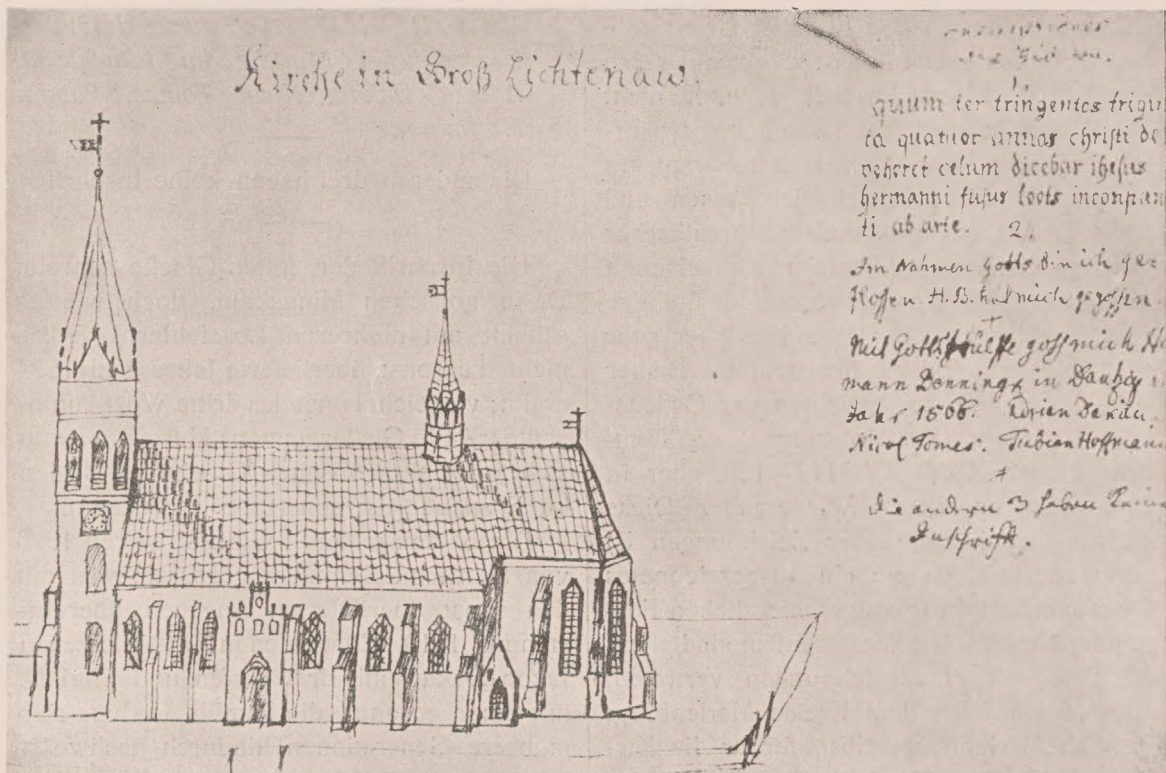 Kirche in Groß Lichtenaw.
1
quum ter tringentes trigin
ta quatuor annas christi de
veheret celum dicebar ihesus
hermanni fusus loets
ti ab arte. 2.
Im Nahmen Gotts bin ich ge
flossen H. B. hat mich gegossen.
Mit Gotts hulffe goss mich He
mann Benningk in Dantzig i
Jahr 1566. Adrien
Nicol Tomes. Fabian Hoffmann
die andern 3 haben keine
Inschrifft.